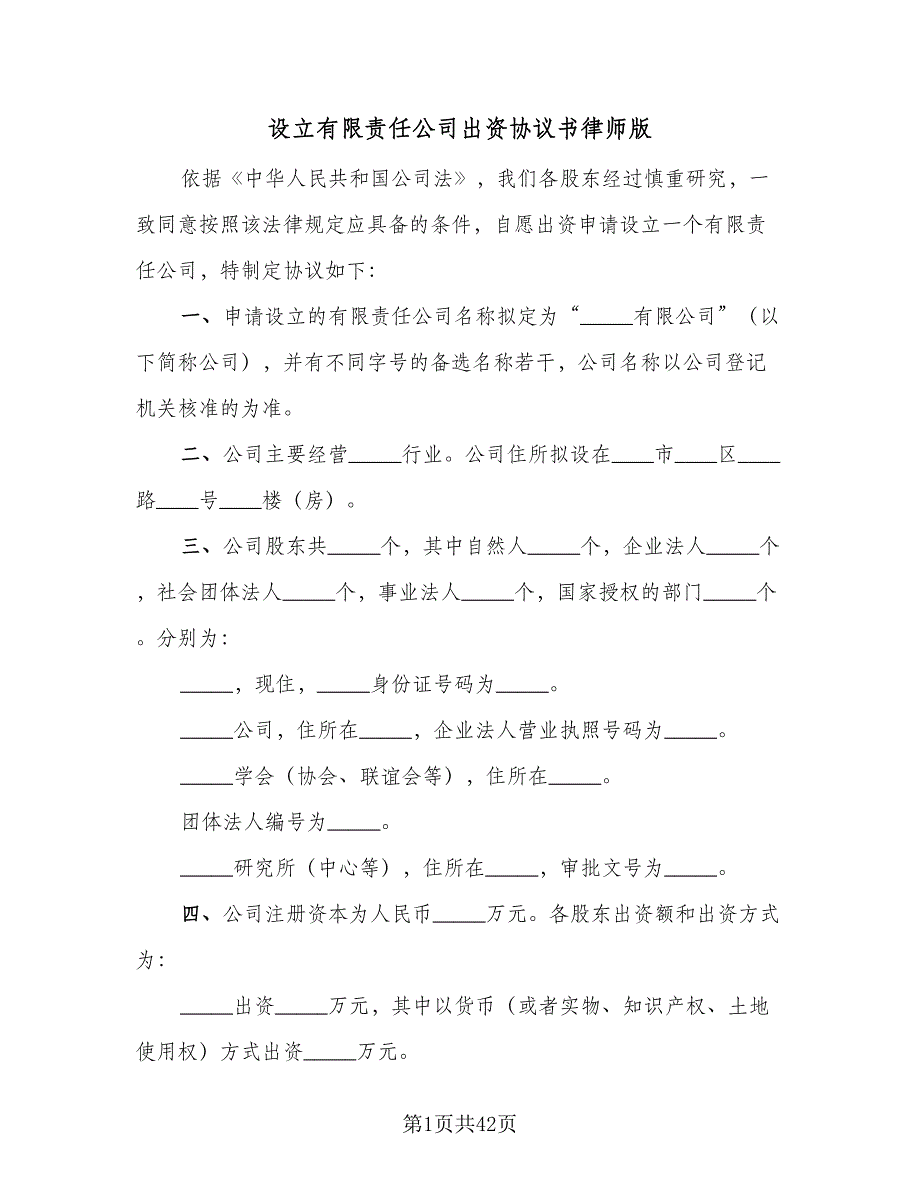 设立有限责任公司出资协议书律师版
依据《中华人民共和国公司法》，我们各股东经过慎重研究，一
致同意按照该法律规定应具备的条件，自愿出资申请设立一个有限责
任公司，特制定协议如下：
一、申请设立的有限责任公司名称拟定为“_____有限公司”（以
下简称公司），并有不同字号的备选名称若干，公司名称以公司登记
机关核准的为准。
二、公司主要经营_____行业。公司住所拟设在____市____区____
路____号____楼（房）。
三、公司股东共_____个，其中自然人_____个，企业法人_____个
，社会团体法人_____个，事业法人_____个，国家授权的部门_____个
。分别为：
_____，现住，_____身份证号码为_____。
_____公司，住所在_____，企业法人营业执照号码为_____。
_____学会（协会、联谊会等），住所在_____。
团体法人编号为_____。
_____研究所（中心等），住所在_____，审批文号为_____。
四、公司注册资本为人民币_____万元。各股东出资额和出资方式
为：
_____出资_____万元，其中以货币（或者实物、知识产权、土地
使用权）方式出资_____万元。
第1页共42页